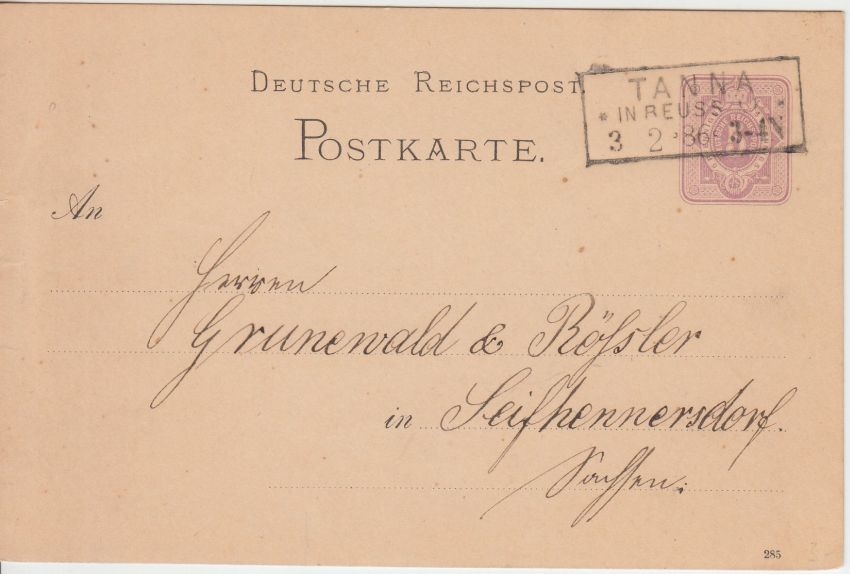 DEUTSCHE REICHSPOST.
POSTKARTE.
TANNA
* IN REUSS *
3 2 86 3-4N
An
Herren
Grunewald & Rößler
in Seifhennersdorf.
Sachsen.
285